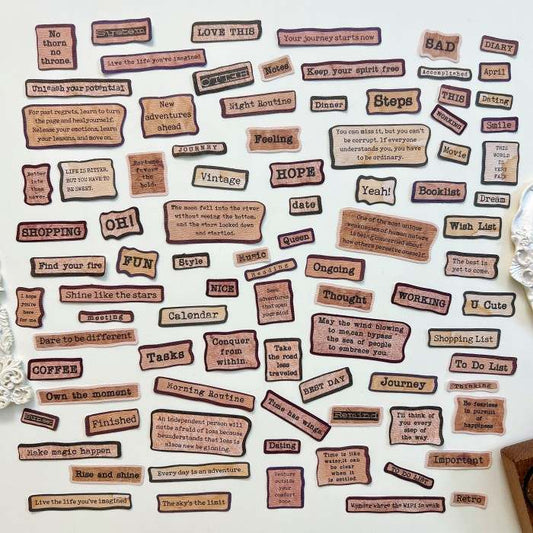 No
thorn
no
throne.
System
LOVE THIS
Your journey starts now
SAD
DIARY
Live the life you've imagined
Notes
Keep your spirit free
Accomplished
April
Unleash your potential
For past regrets, learn to turn
the page and heal yourself.
Release your emotions, learn
your lessons, and move on.
New
adventures
ahead
Night Routine
Dinner
Steps
THIS
Dating
WORKING
Smile
Feeling
You can miss it, but you can't
be corrupt. If everyone
understands you, you have
to be ordinary.
Movie
THIS
WORLD
IS
VERY
FAIR
JOURNEY
better
late
than
never.
LIFE IS BITTER,
BUT YOU HAVE TO
BE SWEET.
Fortune
favors
the
bold.
Vintage
HOPE
Yeah!
Booklist
Dream
date
SHOPPING
OH!
The moon fell into the river
without seeing the bottom,
and the stars looked down
and startled.
Queen
One of the most unique
weaknesses of human nature
is being concerned about
how others perceive oneself.
Wish List
Find your fire
FUN
Style
Music
Reading
Ongoing
The best is
yet to come.
I hope
you're
here
for me.
Shine like the stars
NICE
Seek
adventures
that open
your mind
Thought
WORKING
U Cute
meeting
Calendar
Dare to be different
Tasks
Conquer
from
within.
Take
the road
less
traveled
May the wind blowing
to me, can bypass
the sea of people
to embrace you.
Shopping List
COFFEE
To Do List
Own the moment
Morning Routine
BEST DAY
Journey
Thinking
Finished
An independent person will
not be afraid of loss because
he understands that loss is
also a new beginning.
Time has wings
Remind
I'll think of
you every
step of
the way.
Be fearless
in pursuit
of
happiness
Make magic happen
Dating
Time is like
water, it can
be clear
when it
is settled.
Important
Rise and shine
Every day is an adventure
Venture
outside
your
comfort
zone
TO DO LIST
Live the life you've imagined
The sky's the limit
Wonder where the WiFi is weak
Retro